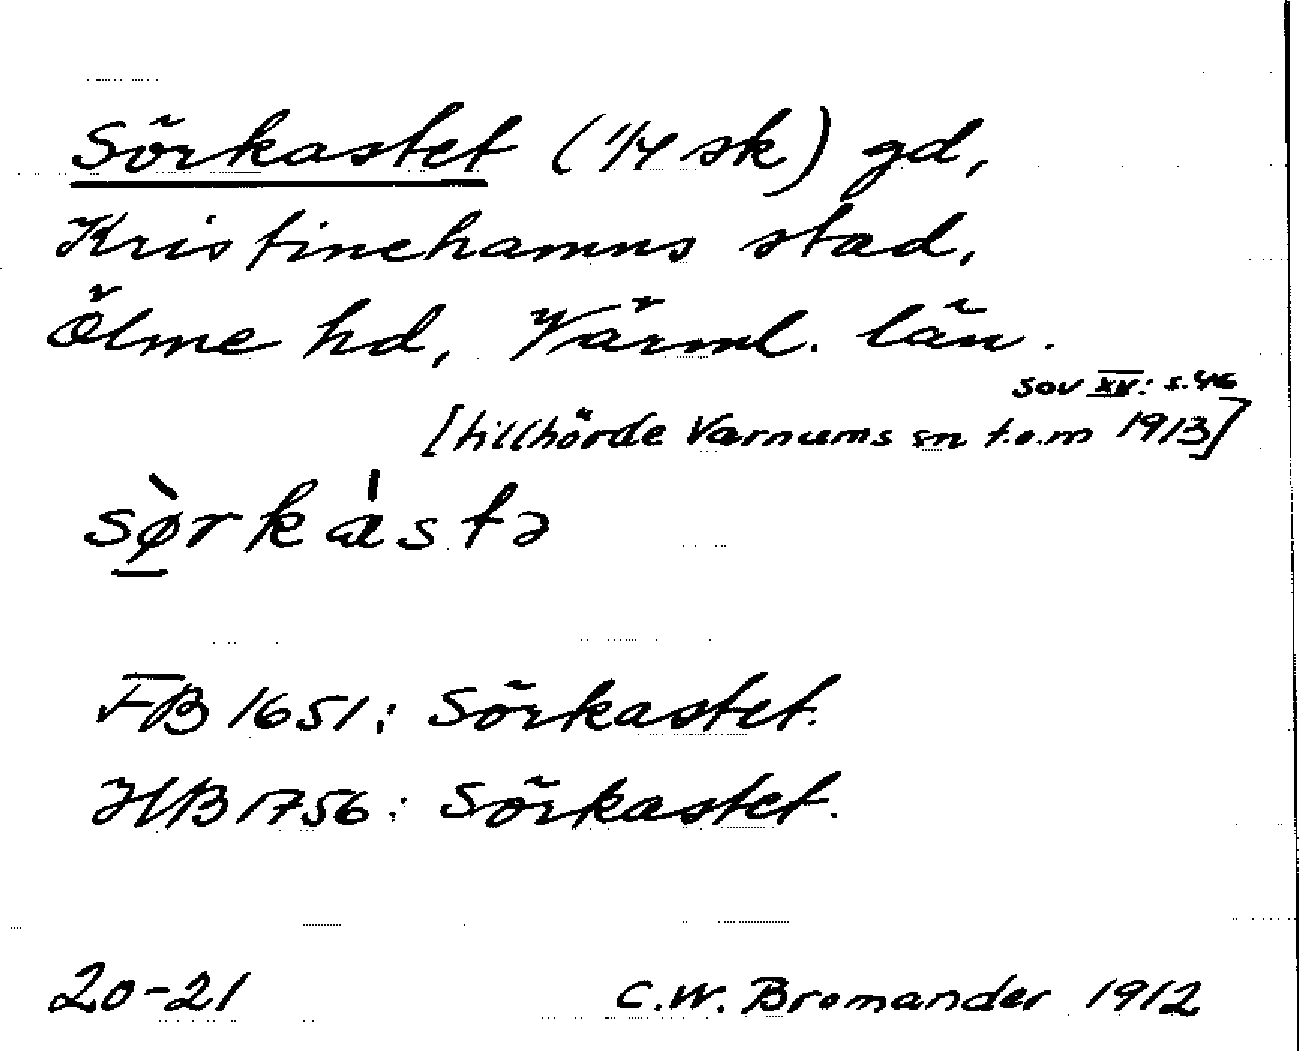 Sörkastet (1/4 sk) gd,
Kristinehamns stad,
Ölme hd, Värml. län.
SOV XV: s. 46
[tillhörde Varnums sn t.o.m 1913]
sø̀rkàstə
JB 1651: Sörkastet.
HB 1756: Sörkastet.
20-21 C.W. Bromander 1912